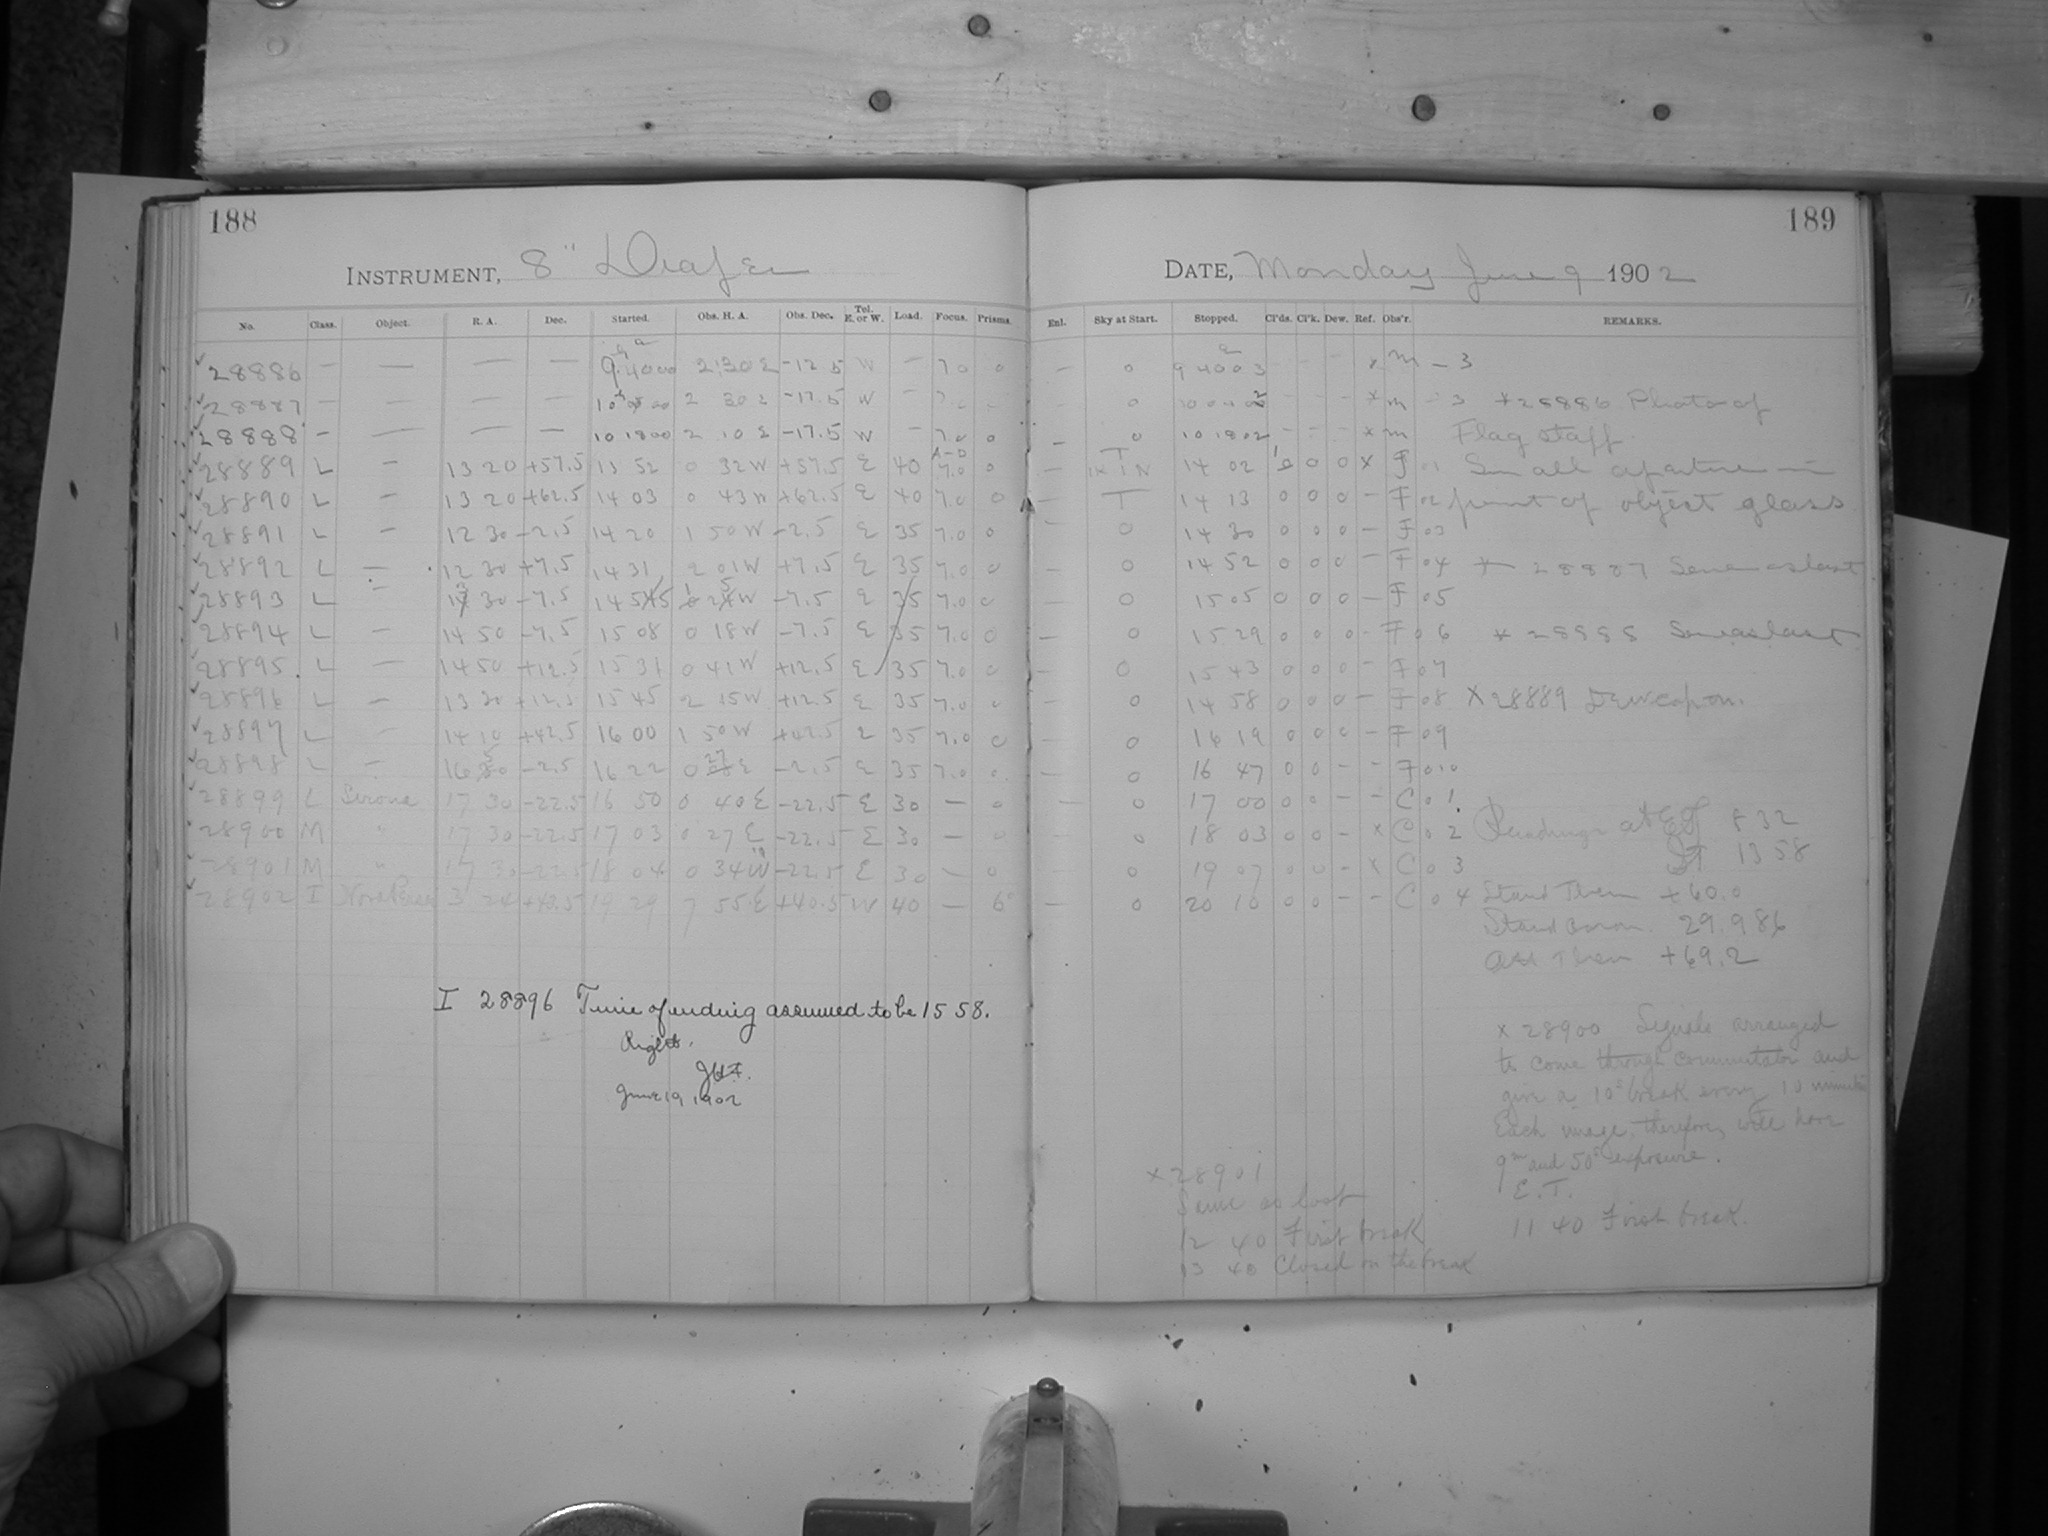 188
INSTRUMENT, 8" Draper
No. Class. Object. R. A. Dec. Started. Obs. H. A. Obs. Dec. Tel. E. or W. Load. Focus. Prisms.
28886 — — — — 9 40 00 2 30 E -12.5 W — 7.0 0
28887 — — — 2 30 E -17.5 W
28888 — — — — 10 18 00 2 10 E -17.5 W — 7.0 0
28889 L — 13 20 +57.5 13 52 0 32 W +57.5 E 40 7.0 0
28890 L — 13 20 +62.5 14 03 0 43 W +62.5 E 40 7.0 0
28891 L — 12 30 -2.5 14 20 1 50 W -2.5 E 35 7.0 0
28892 L — 12 30 +7.5 14 31 2 01 W +7.5 E 35 7.0 0
28893 L — 30 -7.5 14 W -7.5 E 35 7.0 0
28894 L — 14 50 -7.5 15 08 0 18 W -7.5 E 35 7.0 0
28895 L — 14 50 +12.5 15 31 0 41 W +12.5 E 35 7.0 0
28896 L — 13 30 +12.5 15 45 2 15 W +12.5 E 35 7.0 0
28897 L — 14 10 +42.5 16 00 1 50 W +42.5 E 35 7.0 0
28898 L — 16 -2.5 16 22 0 E -2.5 E 35 7.0 0
28899 L Sirona 17 30 -22.5 16 50 0 40 E -22.5 E 30 — 0
28900 M " 17 30 -22.5 17 03 0 27 E -22.5 E 30 — 0
28901 M " 17 30 -22.5 18 04 0 34 W -22.5 E 30 — 0
28902 I 3 24 +40.5 19 29 7 55 E +40.5 W 40 — 6°
I 28896 Time of ending assumed to be 15 58.
Right.
JHF.
June 19 1902
189
DATE, Monday June 9 1902
Enl. Sky at Start. Stopped. Cl'ds. Cl'k. Dew. Ref. Obs'r. REMARKS.
— 0 9 40 03 - - - x m — 3
0 - - - x m - 3 *28886 Photo of
— 0 10 18 02 - - - x m Flag staff
— 14 02 0 0 x F 01 Small aperture in
— T 14 13 0 0 0 - F 02 front of object glass
— 0 14 30 0 0 0 - F 03
— 0 14 52 0 0 0 - F 04 * 28887 Same as last
— 0 15 05 0 0 0 - F 05
— 0 15 29 0 0 0 - F 06 * 28888 Same as last
— 0 15 43 0 0 0 - F 07
— 0 14 58 0 0 0 - F 08 X 28889 Dewcap on.
— 0 16 19 0 0 0 - F 09
— 0 16 47 0 0 - - F 010
— 0 17 00 0 0 - - C 01
0 18 03 0 0 - x C 02 Readings at ET 8 32
0 19 07 0 0 - x C 03 ST 13 58
0 20 10 0 0 - - C 04 Stand Ther +60.0
Stand Barom. 29.986
Att Ther +69.2
x 28900 Signals arranged
to come through commutator and
give a 10s break every 10 minutes
Each image, therefore, will have
9m and 50s exposure.
E.T.
11 40 First break.
x 28901
Same as last
12 40 First break
13 40 Closed on the break